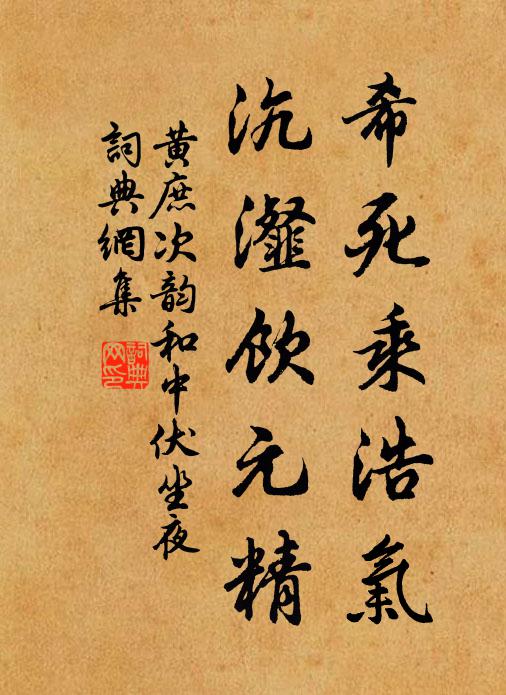 希死乘浩氣
沆瀣飲元精
黄庶次韵和中伏坐夜
詞典網集
詞典網印